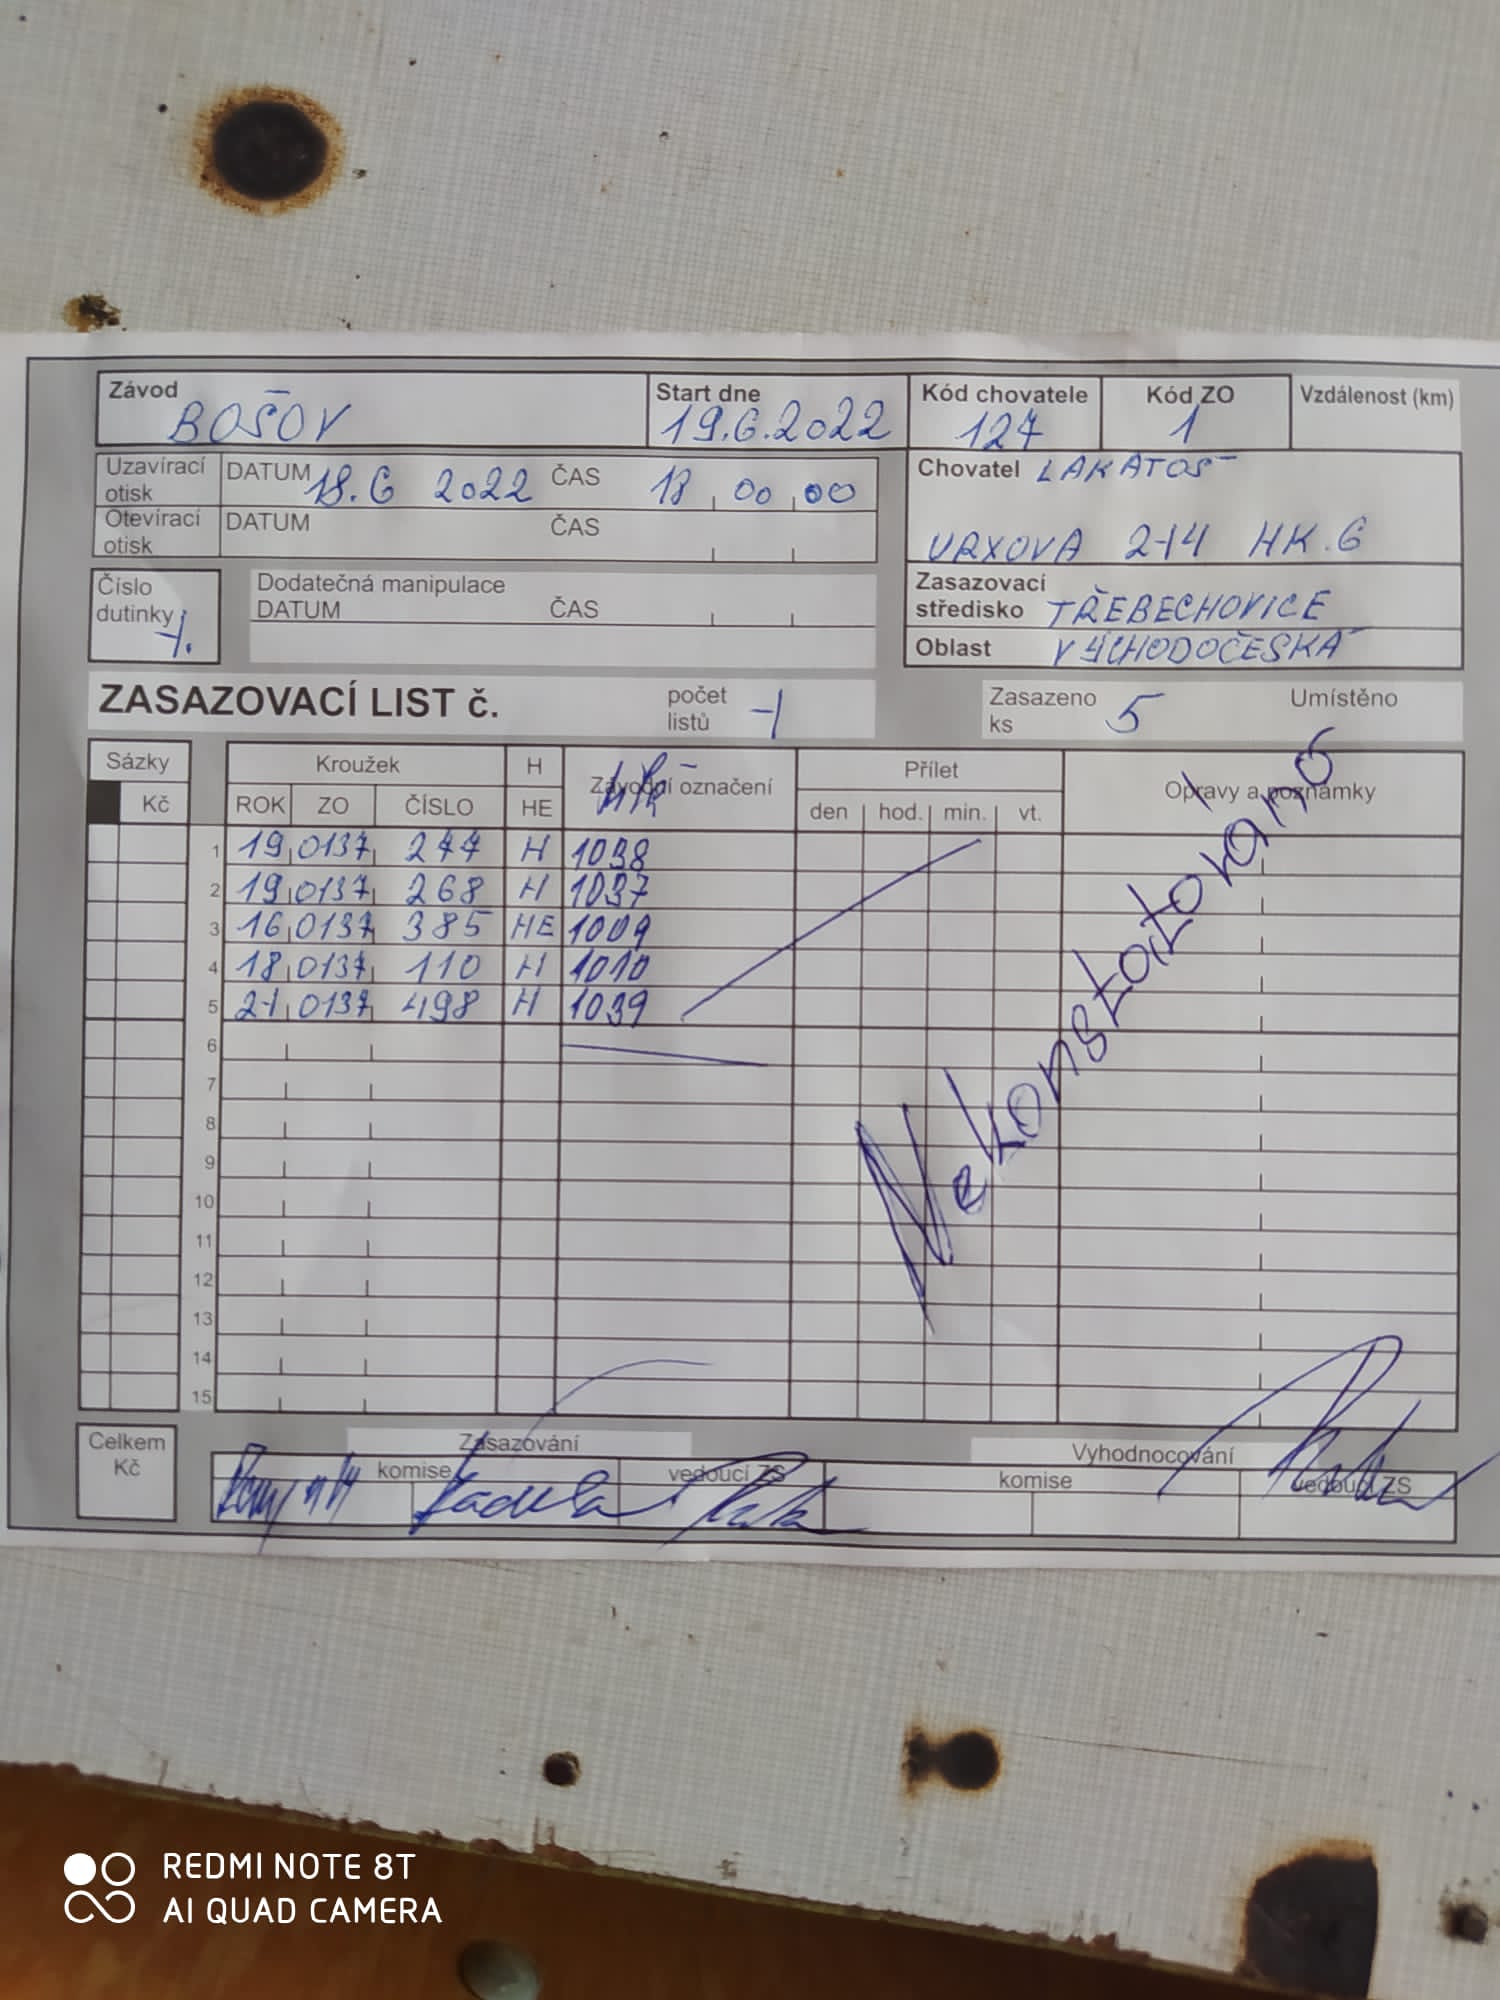 Závod Start dne Kód chovatele Kód ZO Vzdálenost (km)
BOŠOV 19.6.2022 127 1
Uzavírací otisk DATUM 18.6 2022 ČAS 18 00 00
Chovatel LAKATOŠ
Otevírací otisk DATUM ČAS
214 HK.6
Číslo dutinky 1.
Dodatečná manipulace
DATUM ČAS
Zasazovací středisko TŘEBECHOVICE
Oblast VÝCHODOČESKÁ
ZASAZOVACÍ LIST č. počet listů 1 Zasazeno ks 5 Umístěno
Sázky Kroužek H Závodní označení Přílet Opravy a poznámky
Kč ROK ZO ČÍSLO HE den hod. min. vt.
1 19 0137 277 H 1038
2 19 0137 268 H 1037
3 16 0137 385 HE 1009
4 18 0137 110 H 1010
5 21 0137 498 H 1039
6
7
8
9
10
11
12
13
14
15
Nekonstatováno
Celkem Kč Zasazování Vyhodnocování
komise vedoucí ZS komise vedoucí ZS
REDMI NOTE 8T
AI QUAD CAMERA